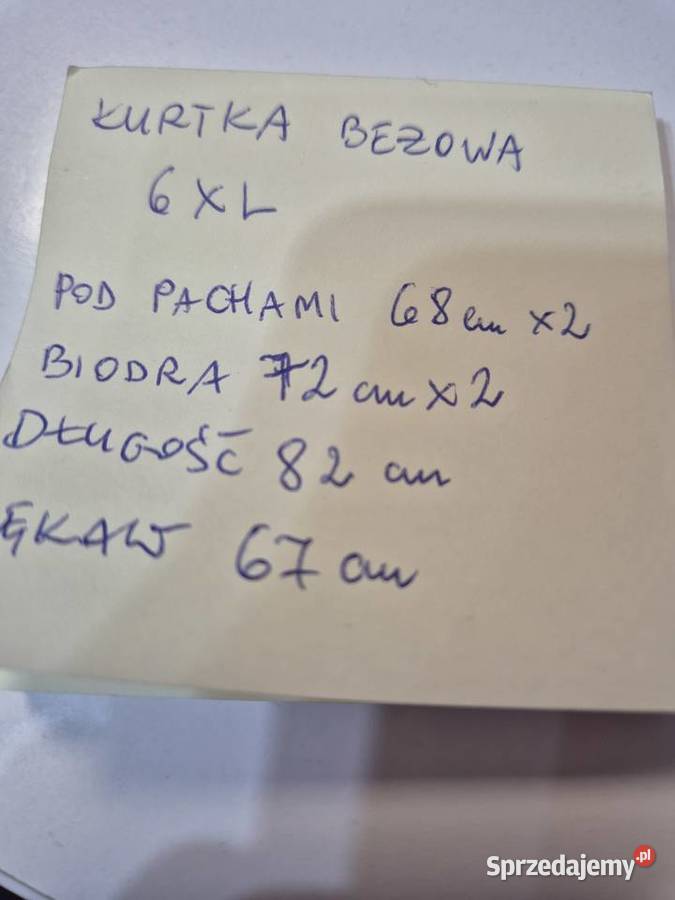 KURTKA BEŻOWA
6XL
POD PACHAMI 68 cm x2
BIODRA 72 cm x2
DŁUGOŚĆ 82 cm
ĘKAW 67 cm
Sprzedajemy.pl